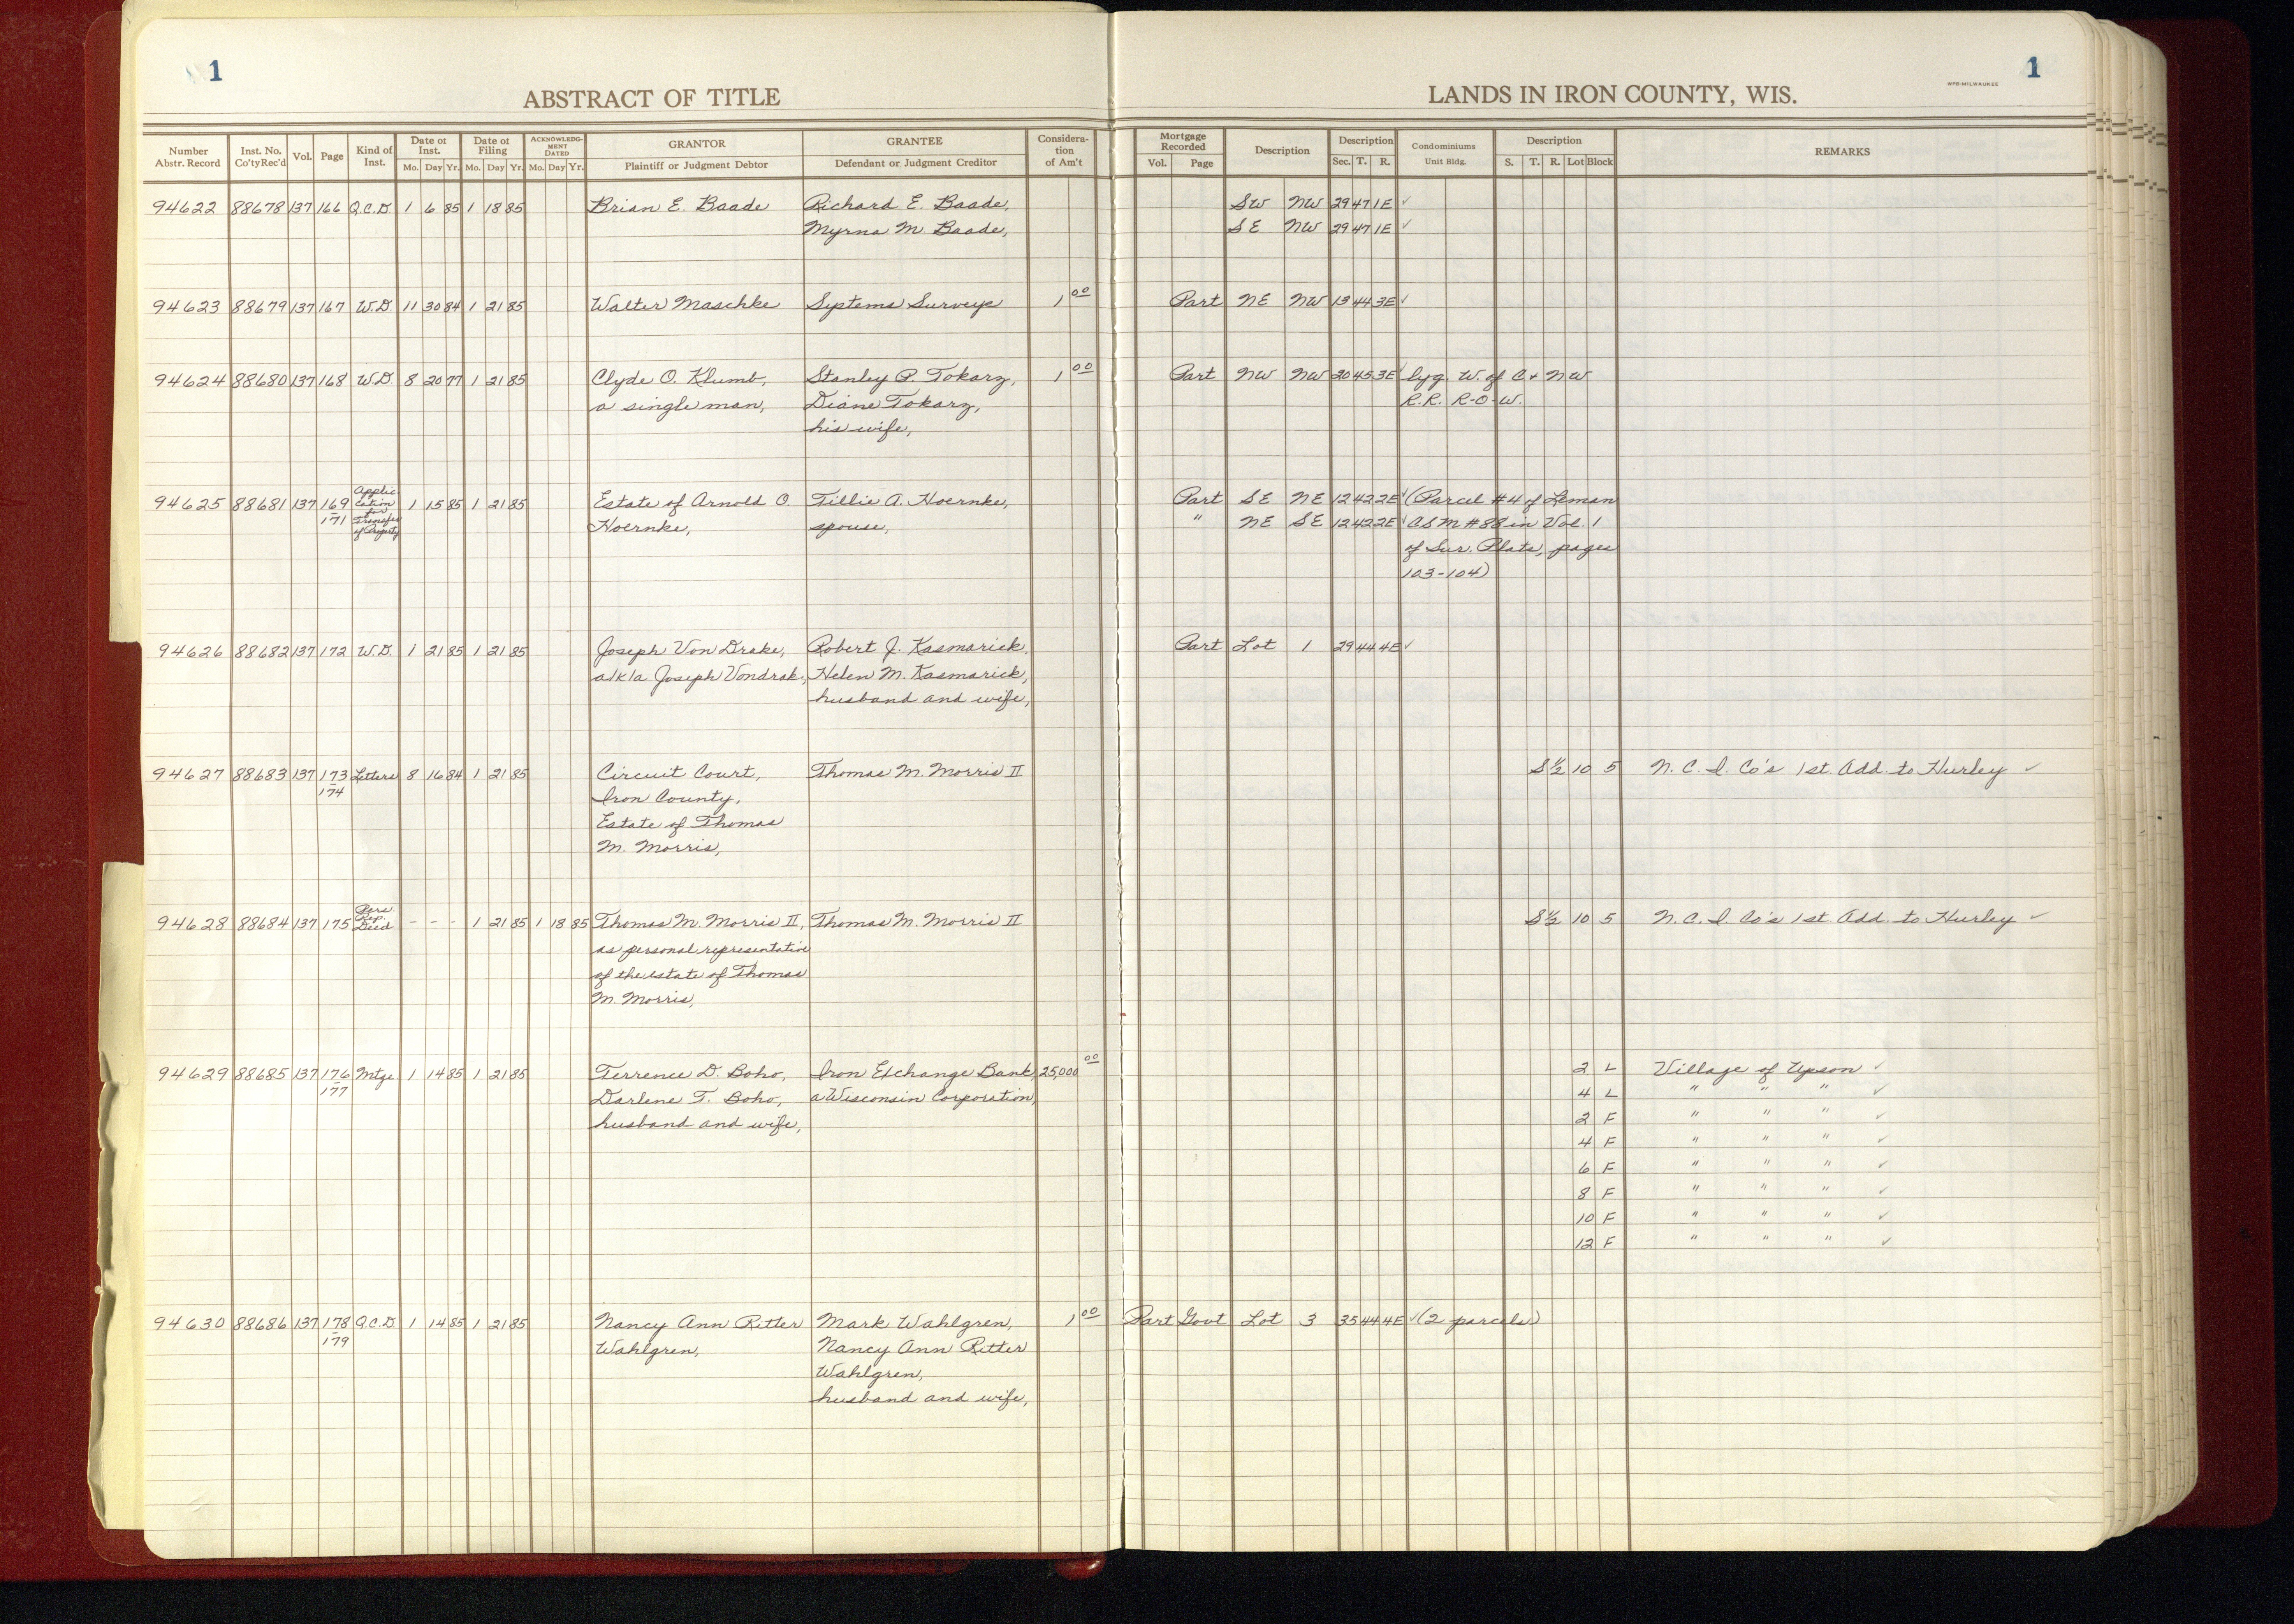 1
ABSTRACT OF TITLE
LANDS IN IRON COUNTY, WIS.
WPB-MILWAUKEE
1
Number Abstr. Record | Inst. No. Co'ty Rec'd | Vol. | Page | Kind of Inst. | Date of Inst. Mo. Day Yr. | Date of Filing Mo. Day Yr. | ACKNOWLEDGMENT DATED Mo. Day Yr. | GRANTOR Plaintiff or Judgment Debtor | GRANTEE Defendant or Judgment Creditor | Consideration of Am't | Mortgage Recorded Vol. Page | Description | Description Sec. T. R. | Condominiums Unit Bldg. | Description S. T. R. Lot Block | REMARKS
94622 88678 137 166 Q.C.D. 1 6 85 1 18 85 Brian E. Baade Richard E. Baade, SW NW 29 47 1E ✓
Myrna M. Baade, SE NW 29 47 1E ✓
94623 88679 137 167 W.D. 11 30 84 1 21 85 Walter Maschke Systems Surveys 1 00 Part NE NW 13 44 3E ✓
94624 88680 137 168 W.D. 8 20 77 1 21 85 Clyde O. Klumb, Stanley P. Tokarz, 1 00 Part NW NW 20 45 3E ✓ lyg. W. of C + NW
a single man, Diane Tokarz, R.R. R-O-W.
his wife,
94625 88681 137 169-171 Application for Transfer of Property 1 15 85 1 21 85 Estate of Arnold O. Tillie A. Hoernke, Part SE NE 12 42 2E ✓ (Parcel #4 of Leman
Hoernke, spouse, " NE SE 12 42 2E ✓ CSM #88 in Vol. 1
of Sur. Plats, pages
103-104)
94626 88682 137 172 W.D. 1 21 85 1 21 85 Joseph Von Drake, Robert J. Kasmarick, Part Lot 1 29 44 4E ✓
a/k/a Joseph Vondrak, Helen M. Kasmarick,
husband and wife,
94627 88683 137 173-174 Letters 8 16 84 1 21 85 Circuit Court, Thomas M. Morris II S½ 10 5 N. C. I. Co's 1st. Add. to Hurley ✓
Iron County,
Estate of Thomas
M. Morris,
94628 88684 137 175 Pers. Rep. Deed - - - 1 21 85 1 18 85 Thomas M. Morris II, Thomas M. Morris II S½ 10 5 N. C. I. Co's 1st Add. to Hurley ✓
as personal representative
of the estate of Thomas
M. Morris,
94629 88685 137 176-177 Mtge 1 14 85 1 21 85 Terrence D. Boho, Iron Exchange Bank, 25,000 00 2 L Village of Upson ✓
Darlene T. Boho, a Wisconsin Corporation, 4 L " " " ✓
husband and wife, 2 F " " " ✓
4 F " " " ✓
6 F " " " ✓
8 F " " " ✓
10 F " " " ✓
12 F " " " ✓
94630 88686 137 178-179 Q.C.D. 1 14 85 1 21 85 Nancy Ann Ritter Mark Wahlgren, 1 00 Part Govt Lot 3 35 44 4E ✓ (2 parcels)
Wahlgren, Nancy Ann Ritter
Wahlgren,
husband and wife,